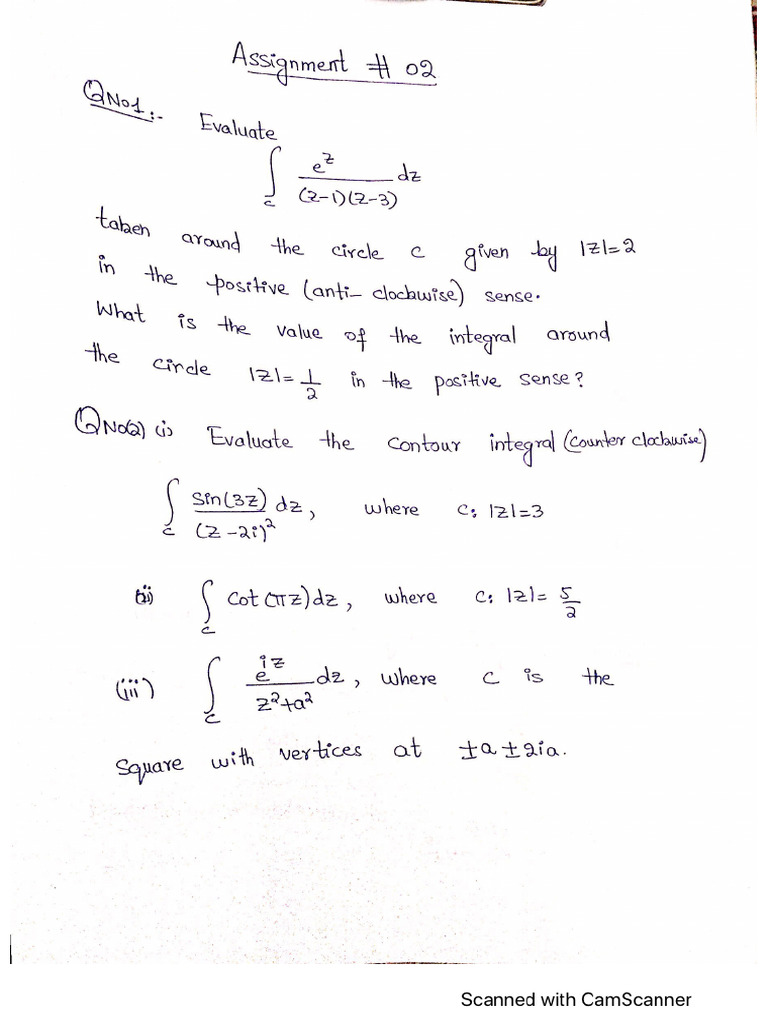 Assignment # 02
QNo1:- Evaluate
∫_c e^z / (z-1)(z-3) dz
taken around the circle c given by |z|=2
in the positive (anti-clockwise) sense.
What is the value of the integral around
the circle |z|= 1/2 in the positive sense?
QNo(2) (i) Evaluate the contour integral (counter clockwise)
∫_c sin(3z) / (z-2i)^2 dz, where c: |z|=3
(ii) ∫_c cot(πz)dz, where c: |z|= 5/2
(iii) ∫_c e^iz / z^2+a^2 dz, where c is the
square with vertices at ±a±2ia.
Scanned with CamScanner